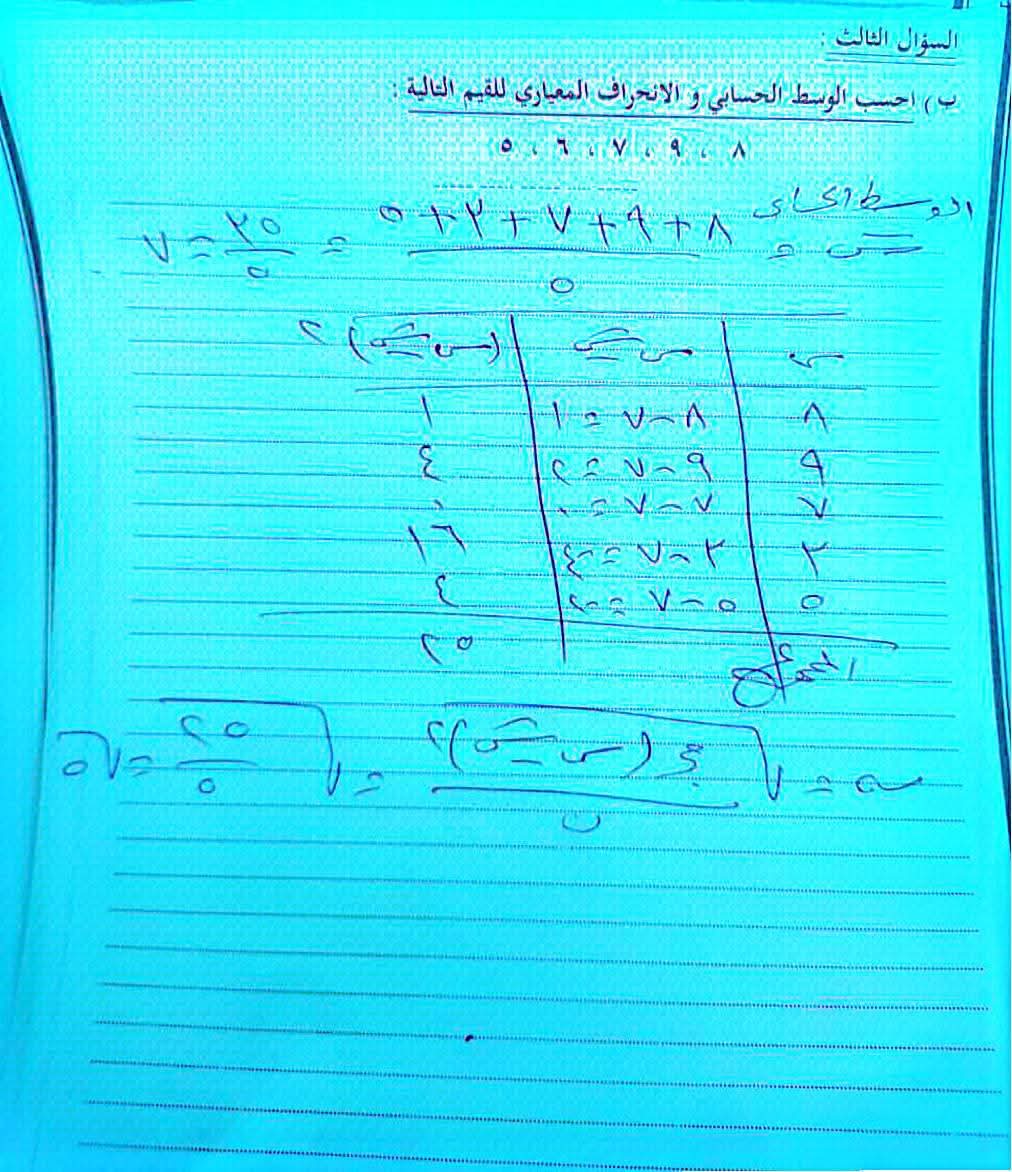 السؤال الثالث :
ب) احسب الوسط الحسابي و الانحراف المعياري للقيم التالية :
٨ ، ٩ ، ٧ ، ٦ ، ٥
الوسط الحسابي
س̄ = (٨+٩+٧+٣+٥)/٥ = ٣٥/٥ = ٧
س | س-س̄ | (س-س̄)٢
٨ | ٨-٧=١ | ١
٩ | ٩-٧=٢ | ٤
٧ | ٧-٧=٠ | ٠
٣ | ٣-٧=-٤ | ١٦
٥ | ٥-٧=-٢ | ٤
المجموع | ٢٥
ع = √(مج (س-س̄)٢/ن) = √(٢٥/٥) = √٥